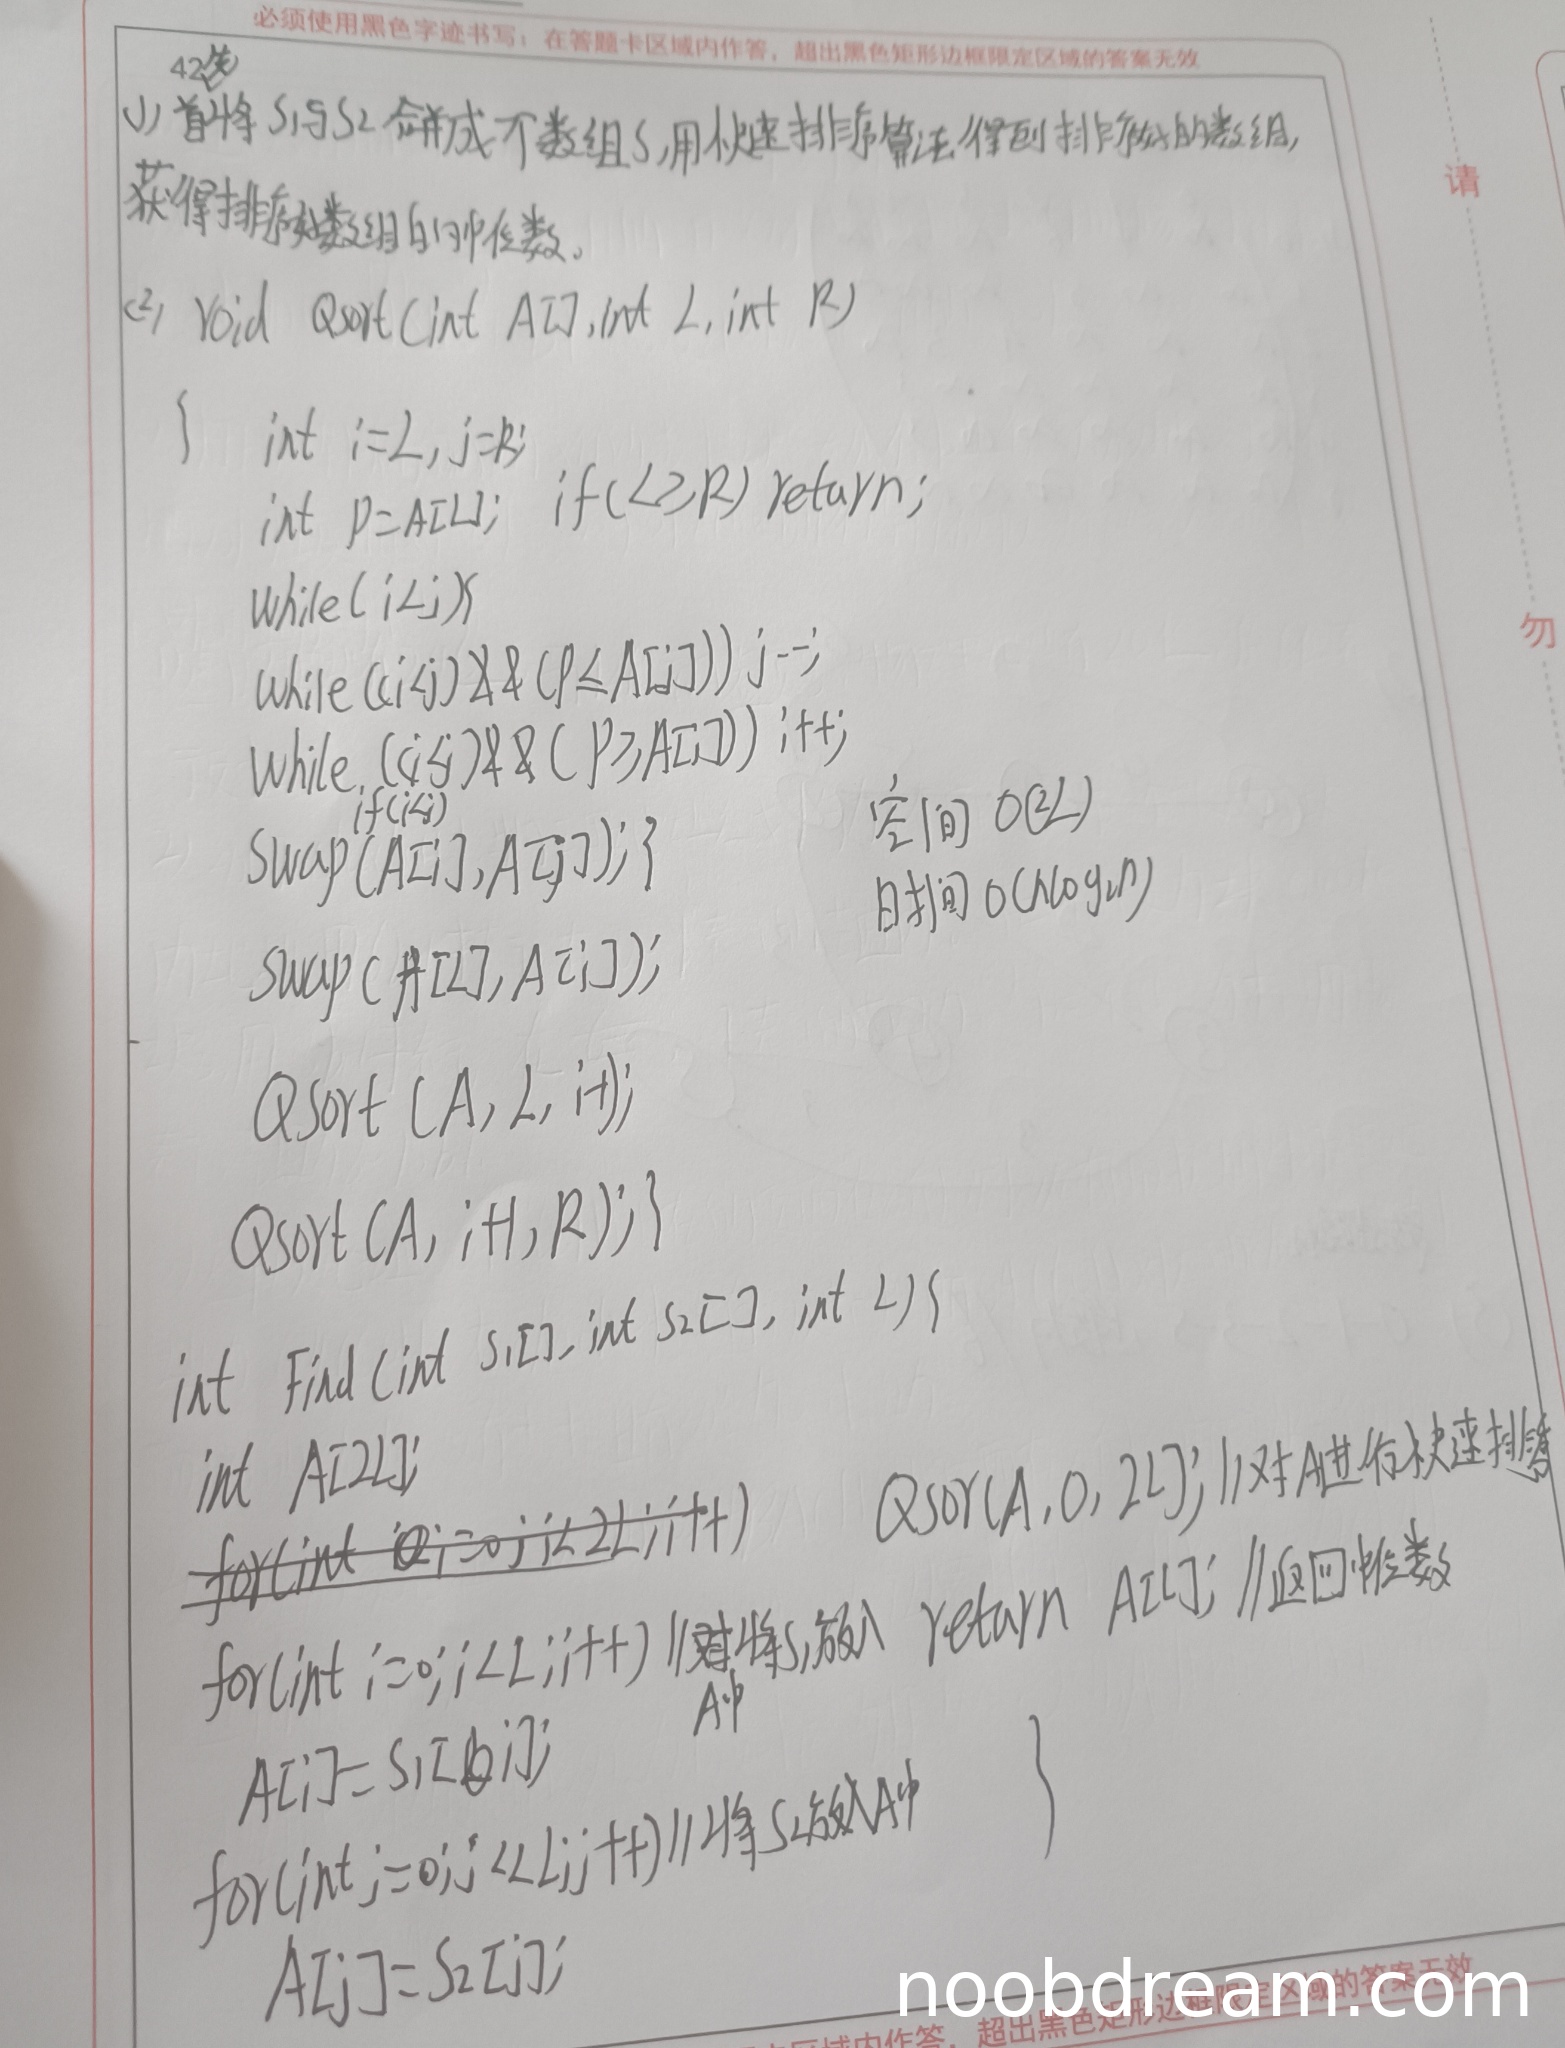 必须使用黑色字迹书写；在答题卡区域内作答，超出黑色矩形边框限定区域的答案无效
42
(1) 首先将S1与S2合并成一个数组S,用快速排序算法得到排序好的数组,
获得排序好数组的中位数。
(2) void Qsort(int A[], int L, int R)
{ int i=L, j=R;
int p=A[L]; if(L≥R) return;
while(i<j){
while((i<j)&&(p≤A[j])) j--;
while((i<j)&&(p≥A[i])) i++;
if(i<j)
swap(A[i],A[j]);}
空间 O(2L)
时间 O(nlog2n)
swap(A[L],A[i]);
Qsort(A, L, i-1);
Qsort(A, i+1, R);}
int Find(int S1[], int S2[], int L){
int A[2L];
for(int i=0;i<2L;i++)
for(int i=0;i<L;i++)//将S1放入
A中
A[i]=S1[i];
for(int j=0;j<L;j++)//将S2放入A中
A[j]=S2[j];
Qsor(A,0,2L];//对A进行快速排序
return A[L];//返回中位数
}
请
勿
区域内作答，超出黑色矩形边框限定区域的答案无效
noobdream.com